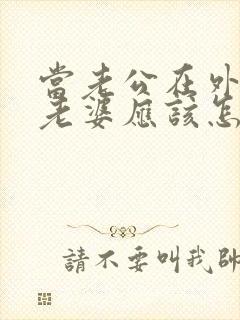 當老公在外
老婆應該怎
請不要叫我帥